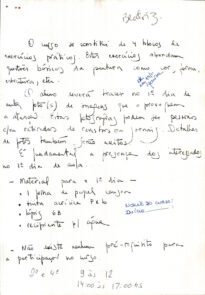 BEATRIZ.
O curso se constitui de 4 blocos de
exercícios práticos. Estes exercícios abordam
questões básicas da pintura como cor, forma,
estrutura, etc.
O aluno deverá trazer no 1º dia de
aula foto(s) de imagens que o
atenção. Estas fotografias podem ser pessoais
ou retiradas de revistas ou jornais. Detalhes
de fotos também são aceitos.
É fundamental a presença dos interessados
no 1º dia de aula.
- Material para o 1º dia -
- 1 folha de papel canson
- tinta acrílica P&B
- lápis 6B
- recipiente p/ água
- Não existe nenhum pré-requisito para
a participação no curso.
3ª e 4ª 9 às 12
14:00 às 17:00 hs